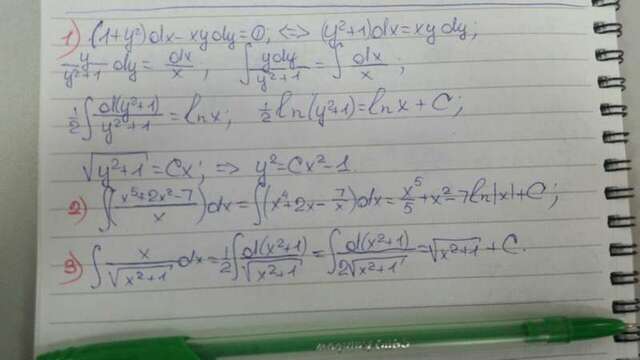 1) (1+y²)dx-xydy=0; <=> (y²+1)dx=xydy;
y/(y²+1) dy = dx/x; ∫ ydy/(y²+1) = ∫ dx/x;
½∫ d(y²+1)/(y²+1) = lnx; ½ ln(y²+1)=lnx+C;
√(y²+1)=Cx; => y²=Cx²-1.
2) ∫((x⁵+2x²-7)/x)dx=∫(x⁴+2x-7/x)dx=x⁵/5+x²-7ln|x|+C;
3) ∫ x/√(x²+1) dx=½∫ d(x²+1)/√(x²+1) = ∫ d(x²+1)/(2√(x²+1)) = √(x²+1) + C.